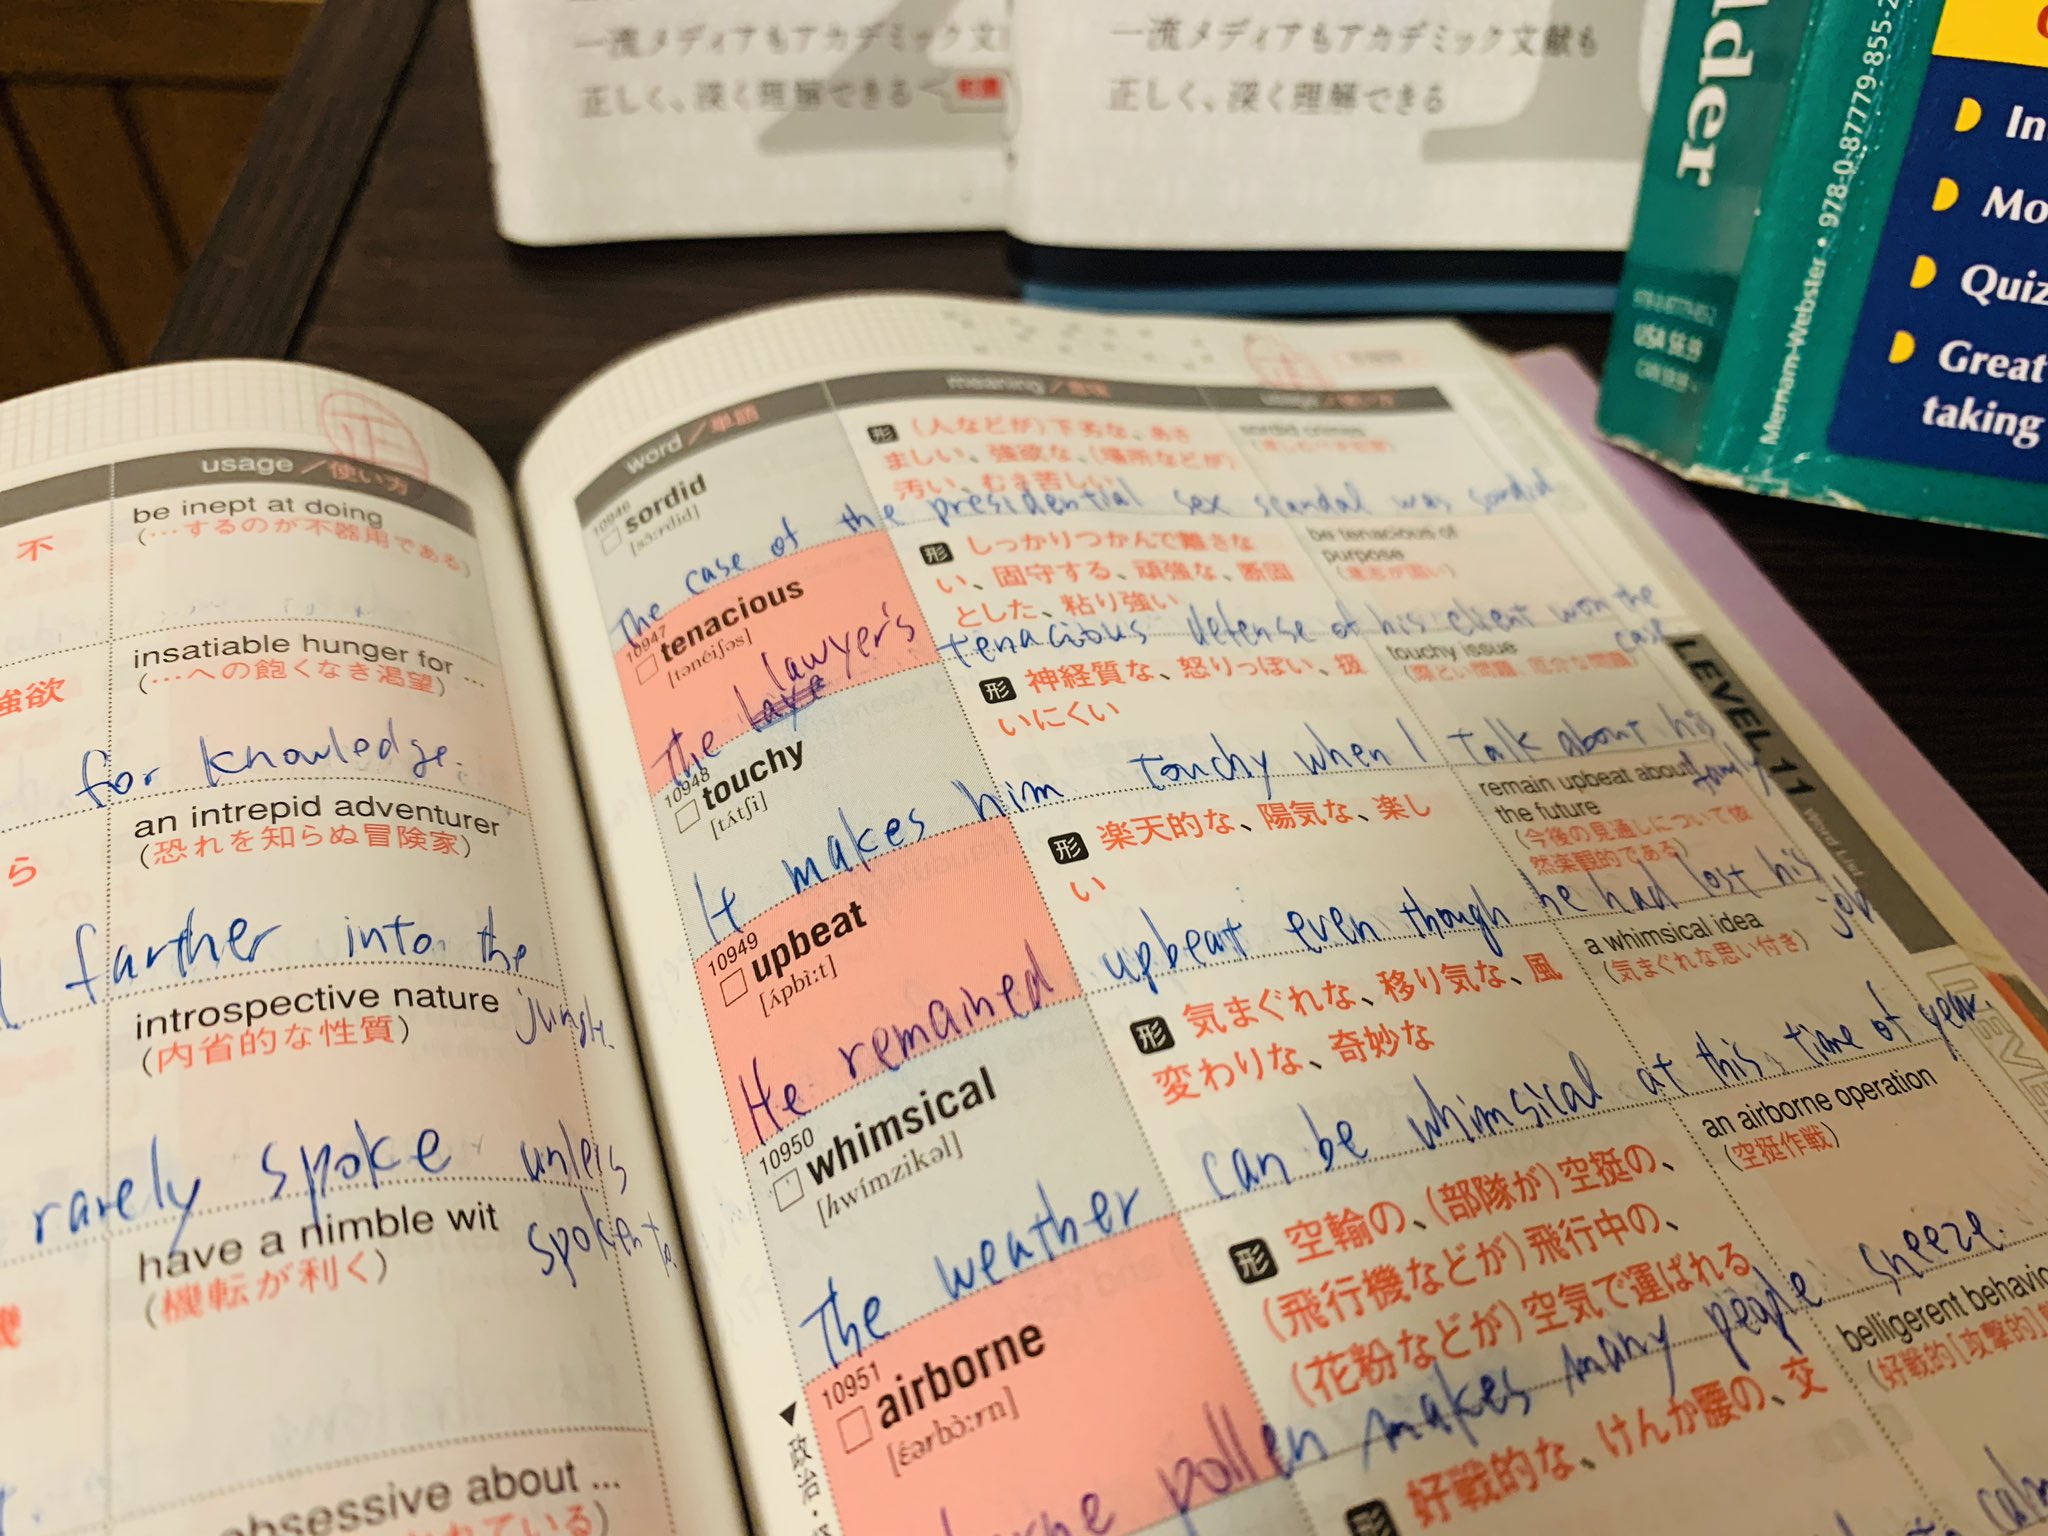 一流メディアもアカデミック文
正しく、深く理解できる
一流メディアもアカデミック文献も
正しく、深く理解できる
lder
Merriam-Webster • 978-0-87779-855-2
USA $6.99
In
Mo
Quiz
Great
taking
usage / 使い方
be inept at doing
(…するのが不器用である)
不
insatiable hunger for ...
(…への飽くなき渇望)
強欲
for knowledge.
an intrepid adventurer
(恐れを知らぬ冒険家)
ら
farther into the
jungle.
introspective nature
(内省的な性質)
rarely spoke unless
spoken to.
have a nimble wit
(機転が利く)
obsessive about ...
word / 単語
meaning / 意味
usage / 使い方
10946
sordid
[sɔ́ːrdid]
形 (人などが)下劣な、あさ
ましい、強欲な、(場所などが)
汚い、むさ苦しい
sordid crimes
The case of the presidential sex scandal was sordid
10947
tenacious
[tənéiʃəs]
形 しっかりつかんで離さな
い、固守する、頑強な、断固
とした、粘り強い
be tenacious of
purpose
(意志が固い)
The lawyer's tenacious defense of his client won the
case
10948
touchy
[tʌ́tʃi]
形 神経質な、怒りっぽい、扱
いにくい
touchy issue
(際どい問題、厄介な問題)
It makes him touchy when I talk about his
family
10949
upbeat
[ʌ́pbìːt]
形 楽天的な、陽気な、楽し
い
remain upbeat about
the future
(今後の見通しについて依
然楽観的である)
He remained upbeat even though he had lost his
job
10950
whimsical
[hwímzikəl]
形 気まぐれな、移り気な、風
変わりな、奇妙な
a whimsical idea
(気まぐれな思い付き)
The weather can be whimsical at this time of year.
10951
airborne
[ɛ́ərbɔ̀ːrn]
形 空輸の、(部隊が)空挺の、
(飛行機などが)飛行中の、
(花粉などが)空気で運ばれる
an airborne operation
(空挺作戦)
pollen makes many people sneeze.
形 好戦的な、けんか腰の、交
belligerent behavio
(好戦的[攻撃的]
LEVEL 11
Word List
▼政治・